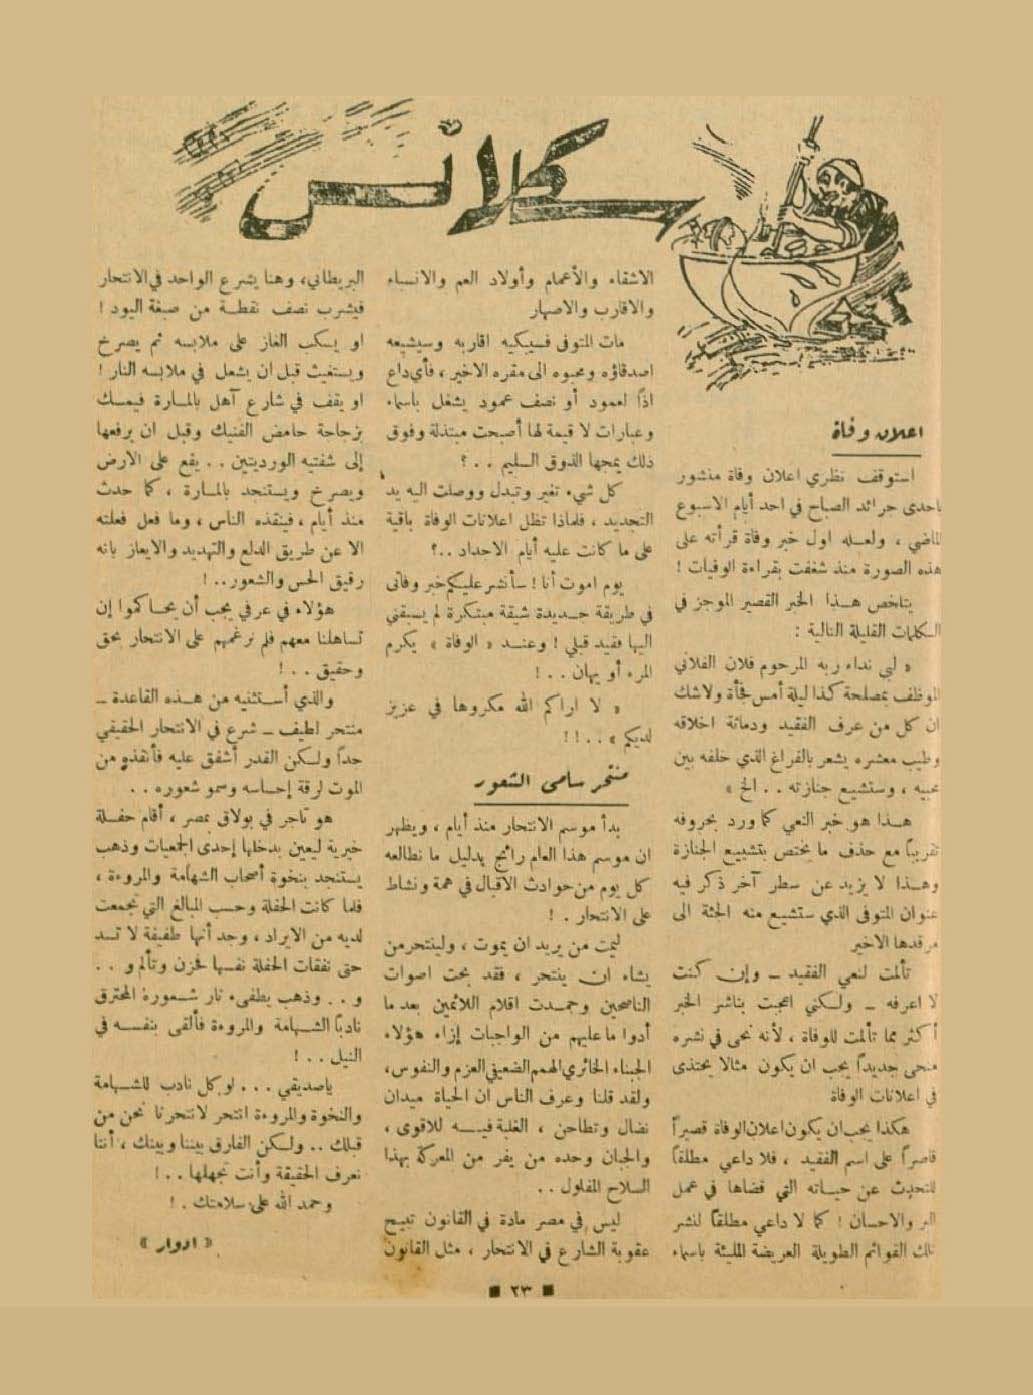 سكلانس
اعلان وفاة
استوقف نظري اعلان وفاة منشور
باحدى جرائد الصباح في احد أيام الاسبوع
الماضي ، ولعله اول خبر وفاة قرأته على
هذه الصورة منذ شغفت بقراءة الوفيات !
يتلخص هذا الخبر القصير الموجز في
الكلمات القليلة التالية :
« لبي نداء ربه المرحوم فلان الفلاني
الموظف بمصلحة كذا ليلة أمس فجأة ولاشك
ان كل من عرف الفقيد ودماثة اخلاقه
وطيب معشره يشعر بالفراغ الذي خلفه بين
محبيه ، وستشيع جنازته . . الخ »
هذا هو خبر النعي كما ورد بحروفه
تقريباً مع حذف ما يختص بتشييع الجنازة
وهذا لا يزيد عن سطر آخر ذكر فيه
عنوان المتوفى الذي ستشيع منه الجثة الى
مرقدها الاخير
تألمت لنعي الفقيد ـ وإن كنت
لا اعرفه ـ ولكني اعجبت بناشر الخبر
أكثر مما تألمت للوفاة ، لأنه نحى في نشره
منحى جديداً يجب ان يكون مثالا يحتذى
في اعلانات الوفاة
هكذا يجب ان يكون اعلان الوفاة قصيراً
قاصراً على اسم الفقيد ، فلا داعي مطلقاً
للتحدث عن حياته التي قضاها في عمل
البر والاحسان ! كما لا داعي مطلقاً لنشر
تلك القوائم الطويلة العريضة المليئة باسماء
الاشقاء والأعمام وأولاد العم والانساء
والاقارب والاصهار
مات المتوفى فسيبكيه اقاربه وسيشيعه
اصدقاؤه ومحبوه الى مقره الاخير ، فأي داع
اذاً لعمود أو نصف عمود يشغل باسماء
وعبارات لا قيمة لها أصبحت مبتذلة وفوق
ذلك يمجها الذوق السليم . . ؟
كل شيء تغير وتبدل ووصلت اليه يد
التجديد ، فلماذا تظل اعلانات الوفاة باقية
على ما كانت عليه أيام الاجداد . . ؟
يوم اموت أنا ! سأنشر عليكم خبر وفاتى
في طريقة جديدة شيقة مبتكرة لم يسبقني
اليها فقيد قبلي ! وعند « الوفاة » يكرم
المرء أو يهان . . !
« لا اراكم الله مكروها في عزيز
لديكم » . . ! !
منتحر سامى الشعور
بدأ موسم الانتحار منذ أيام ، ويظهر
ان موسم هذا العام رائج بدليل ما نطالعه
كل يوم من حوادث الاقبال في همة ونشاط
على الانتحار . !
ليمت من يريد ان يموت ، ولينتحر من
يشاء ان ينتحر ، فقد بحت اصوات
الناصحين وجمدت اقلام اللائمين بعد ما
أدوا ما عليهم من الواجبات إزاء هؤلاء
الجبناء الخائري الهمم الضعيفي العزم والنفوس ،
ولقد قلنا وعرف الناس ان الحياة ميدان
نضال وتطاحن ، الغلبة فيه للاقوى ،
والجبان وحده من يفر من المعركة بهذا
السلاح المفلول . .
ليس في مصر مادة في القانون تبيح
عقوبة الشارع في الانتحار ، مثل القانون
البريطاني ، وهنا يشرع الواحد في الانتحار
فيشرب نصف نقطة من صبغة اليود !
او يسكب الغاز على ملابسه ثم يصرخ
ويستغيث قبل ان يشعل في ملابسه النار !
او يقف في شارع آهل بالمارة فيمسك
بزجاجة حامض الفنيك وقبل ان يرفعها
إلى شفتيه الورديتين . . يقع على الارض
ويصرخ ويستنجد بالمارة ، كما حدث
منذ أيام ، فينقذه الناس ، وما فعل فعلته
الا عن طريق الدلع والتهديد والايعاز بانه
رقيق الحس والشعور . . !
هؤلاء في عرفي يجب أن يحاكموا إن
تساهلنا معهم فلم نرغمهم على الانتحار بحق
وحقيق . . !
والذي أستثنيه من هذه القاعدة ـ
منتحر لطيف ـ شرع في الانتحار الحقيقي
جداً ولكن القدر أشفق عليه فأنقذه من
الموت لرقة إحساسه وسمو شعوره . .
هو تاجر في بولاق بمصر ، أقام حفلة
خيرية ليعين بدخلها إحدى الجمعيات وذهب
يستنجد بنخوة أصحاب الشهامة والمروءة ،
فلما كانت الحفلة وحسب المبالغ التي تجمعت
لديه من الايراد ، وجد أنها طفيفة لا تسد
حتى نفقات الحفلة نفسها فحزن وتألم و . .
و . . وذهب يطفىء نار شعوره المحترق
نادباً الشهامة والمروءة فألقى بنفسه في
النيل . . !
ياصديقي . . . لو كل نادب للشهامة
والنخوة والمروءة انتحر لانتحرنا نحن من
قبلك . . ولكن الفارق بيننا وبينك ، أننا
نعرف الحقيقة وأنت تجهلها . . !
وحمد الله على سلامتك . !
« ادوار »
■ ٢٣ ■